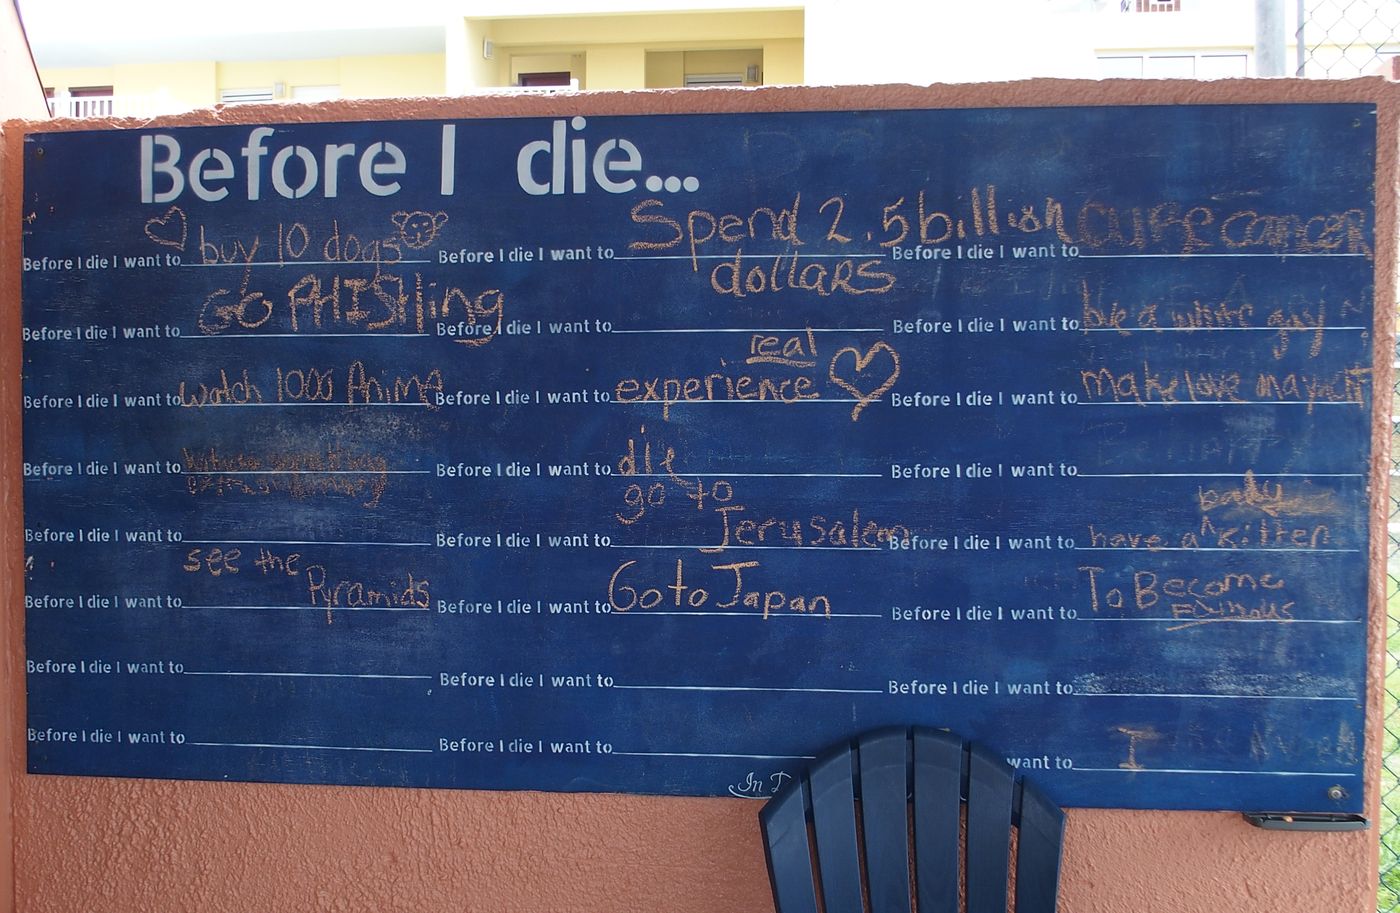 Before I die...
Before I die I want to buy 10 dogs
Before I die I want to Spend 2.5 billion
dollars
Before I die I want to cure cancer
Before I die I want to GO PHISHing
Before I die I want to
Before I die I want to a white guy
Before I die I want to watch 1000 Anime
Before I die I want to experience real
Before I die I want to make love
Before I die I want to
Before I die I want to die
Before I die I want to
Before I die I want to
Before I die I want to go to
Jerusalem
Before I die I want to have a baby kitten
Before I die I want to see the
Pyramids
Before I die I want to Go to Japan
Before I die I want to To Become
FAMOUS
Before I die I want to
Before I die I want to
Before I die I want to
Before I die I want to
Before I die I want to
want to I
In